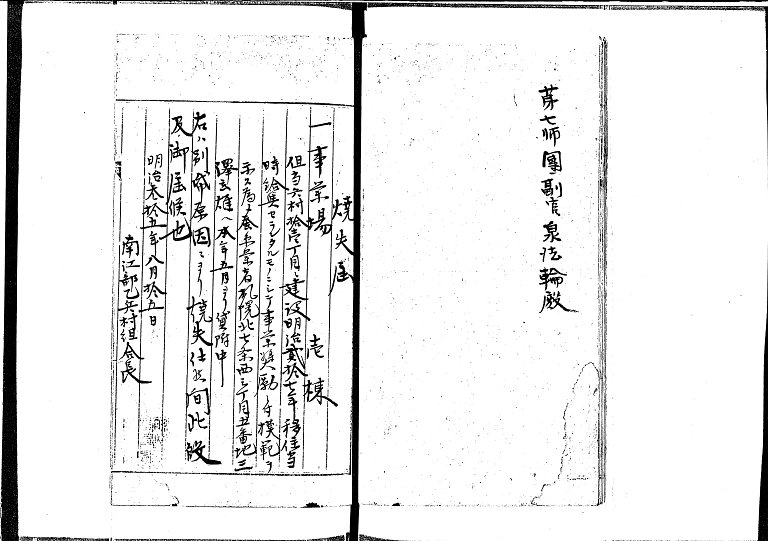 第七師團副官泉法輪殿
焼失届
一事業場 壱棟
但当兵村拾壱丁目ニ建設明治貳拾七年移住当
時給與セラレタルモノニシテ事業奨勵ノ為模範ヲ
示ス為メ営業者札幌北七条西三丁目五番地三
澤玄雄ヘ本年五月ヨリ貸附中
右ハ別紙原因ニヨリ焼失仕候間此段
及御届候也
明治参拾五年八月拾五日
南江部乙兵村組合長